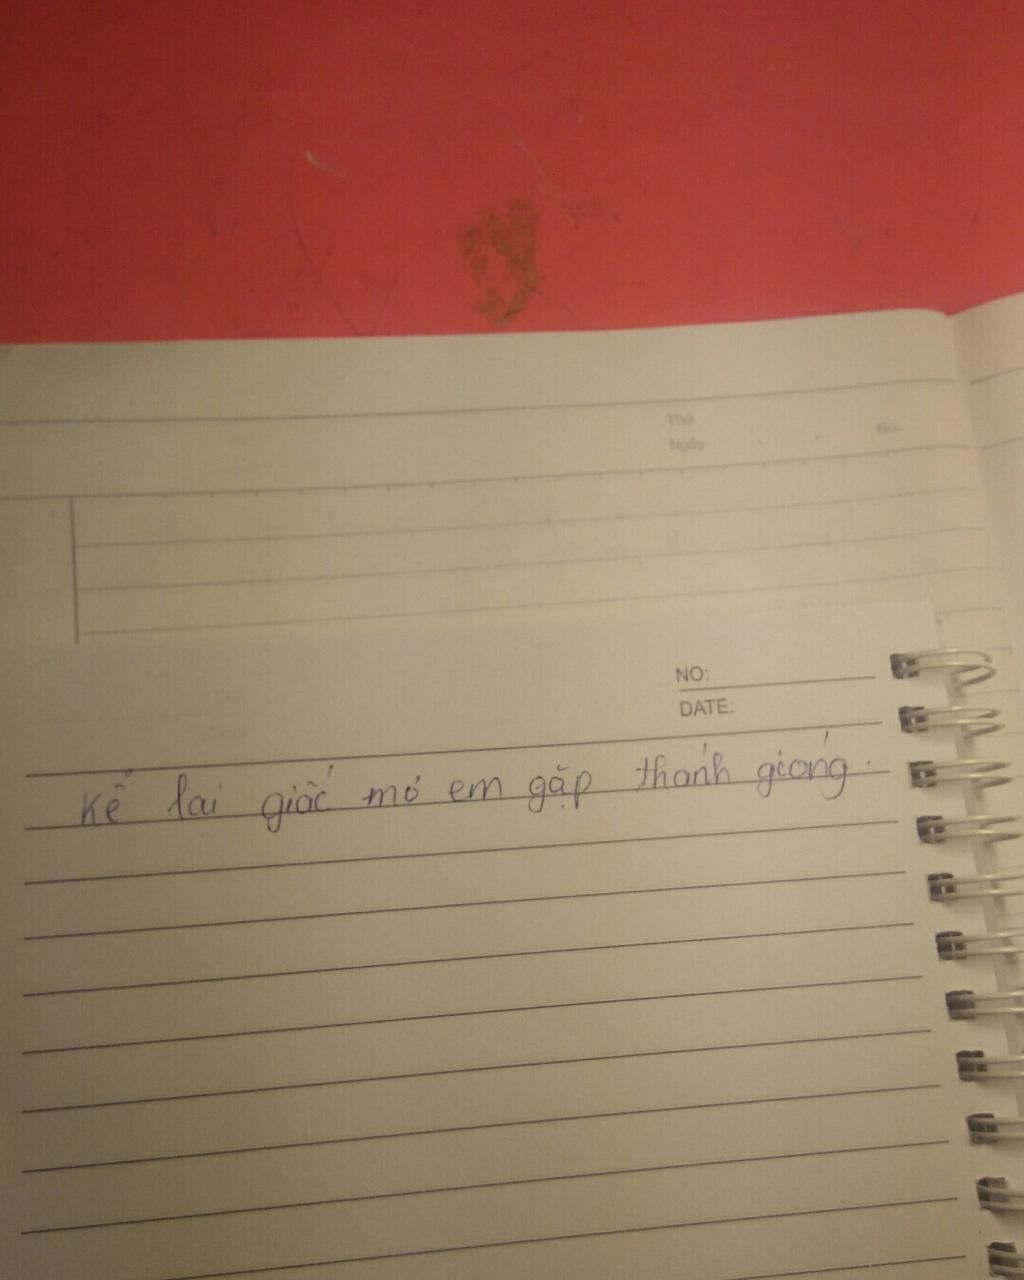 Thứ
Ngày
No.
NO:
DATE:
Kể lai giấc mớ em gặp thánh gióng.